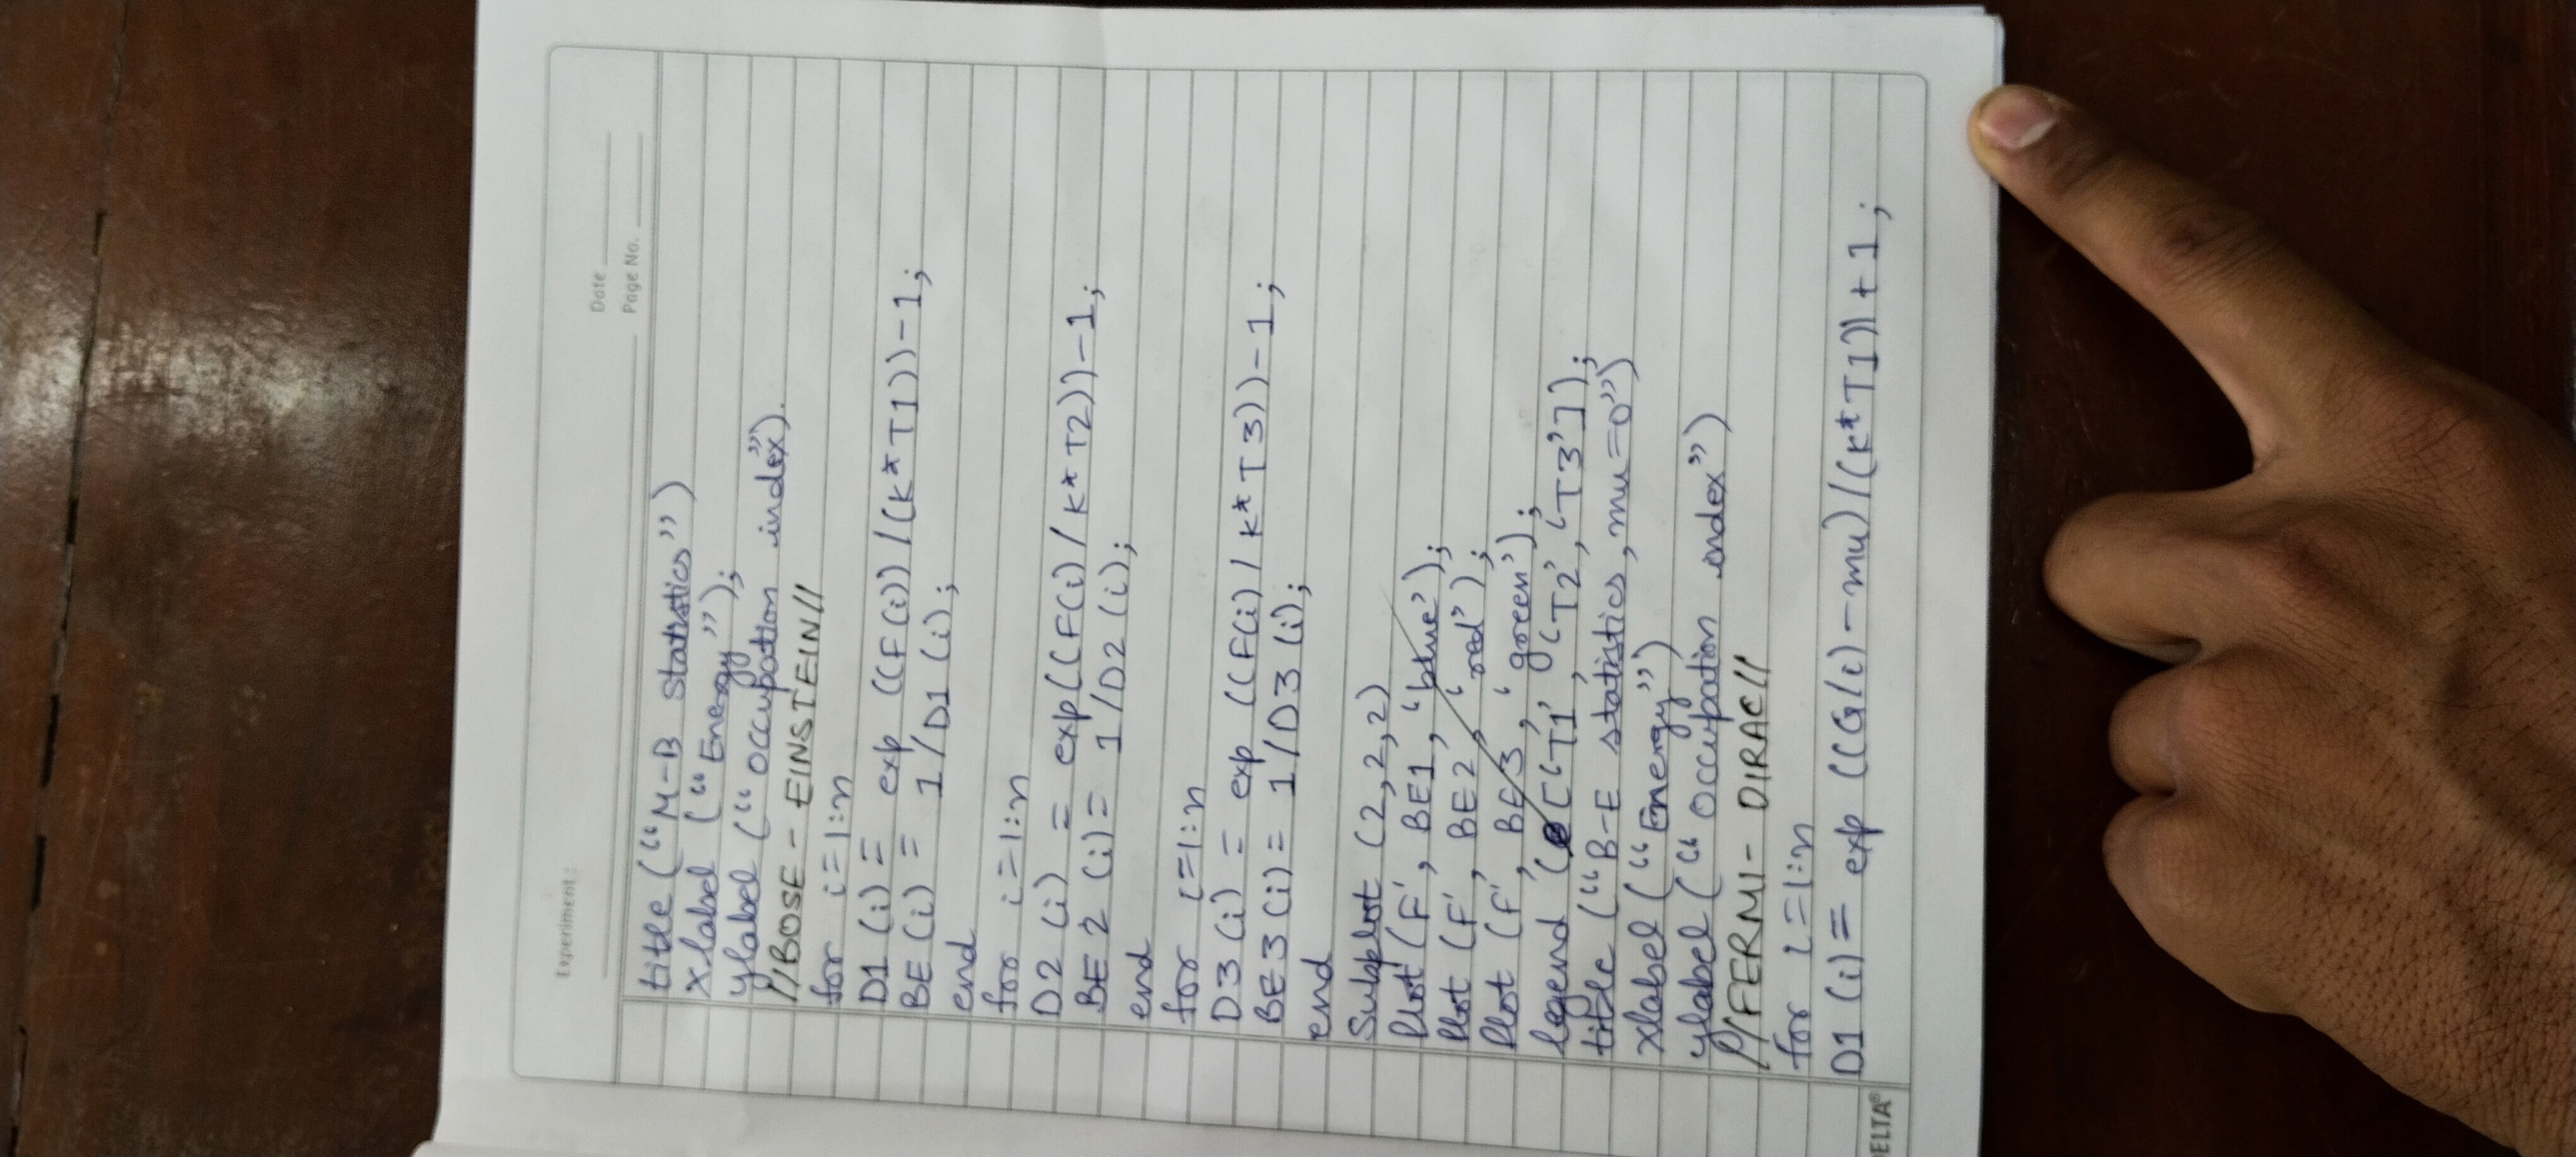 Experiment :
Date
Page No.
title (“M-B Statistics”)
xlabel (“Energy”);
ylabel (“Occupation index”).
//BOSE - EINSTEIN//
for i=1:n
D1 (i) = exp ((F(i))/(K*T1))-1;
BE (i) = 1/D1 (i);
end
for i=1:n
D2 (i) = exp((F(i)/K*T2))-1;
BE 2 (i)= 1/D2 (i);
end
for i=1:n
D3 (i) = exp ((F(i)/K*T3))-1;
BE3 (i) = 1/D3 (i);
end
Subplot (2,2,2)
Plot (F', BE1, ‘blue’);
Plot (F', BE2, ‘red’);
Plot (F', BE3, ‘green’);
legend ([‘T1’, ‘T2’, ‘T3’]);
title (“B-E statistics, mu=0”)
xlabel (“Energy”)
ylabel (“Occupation index”)
//FERMI- DIRAC//
for i=1:n
D1 (i) = exp ((G(i)-mu)/(K*T1))+1;
DELTA®